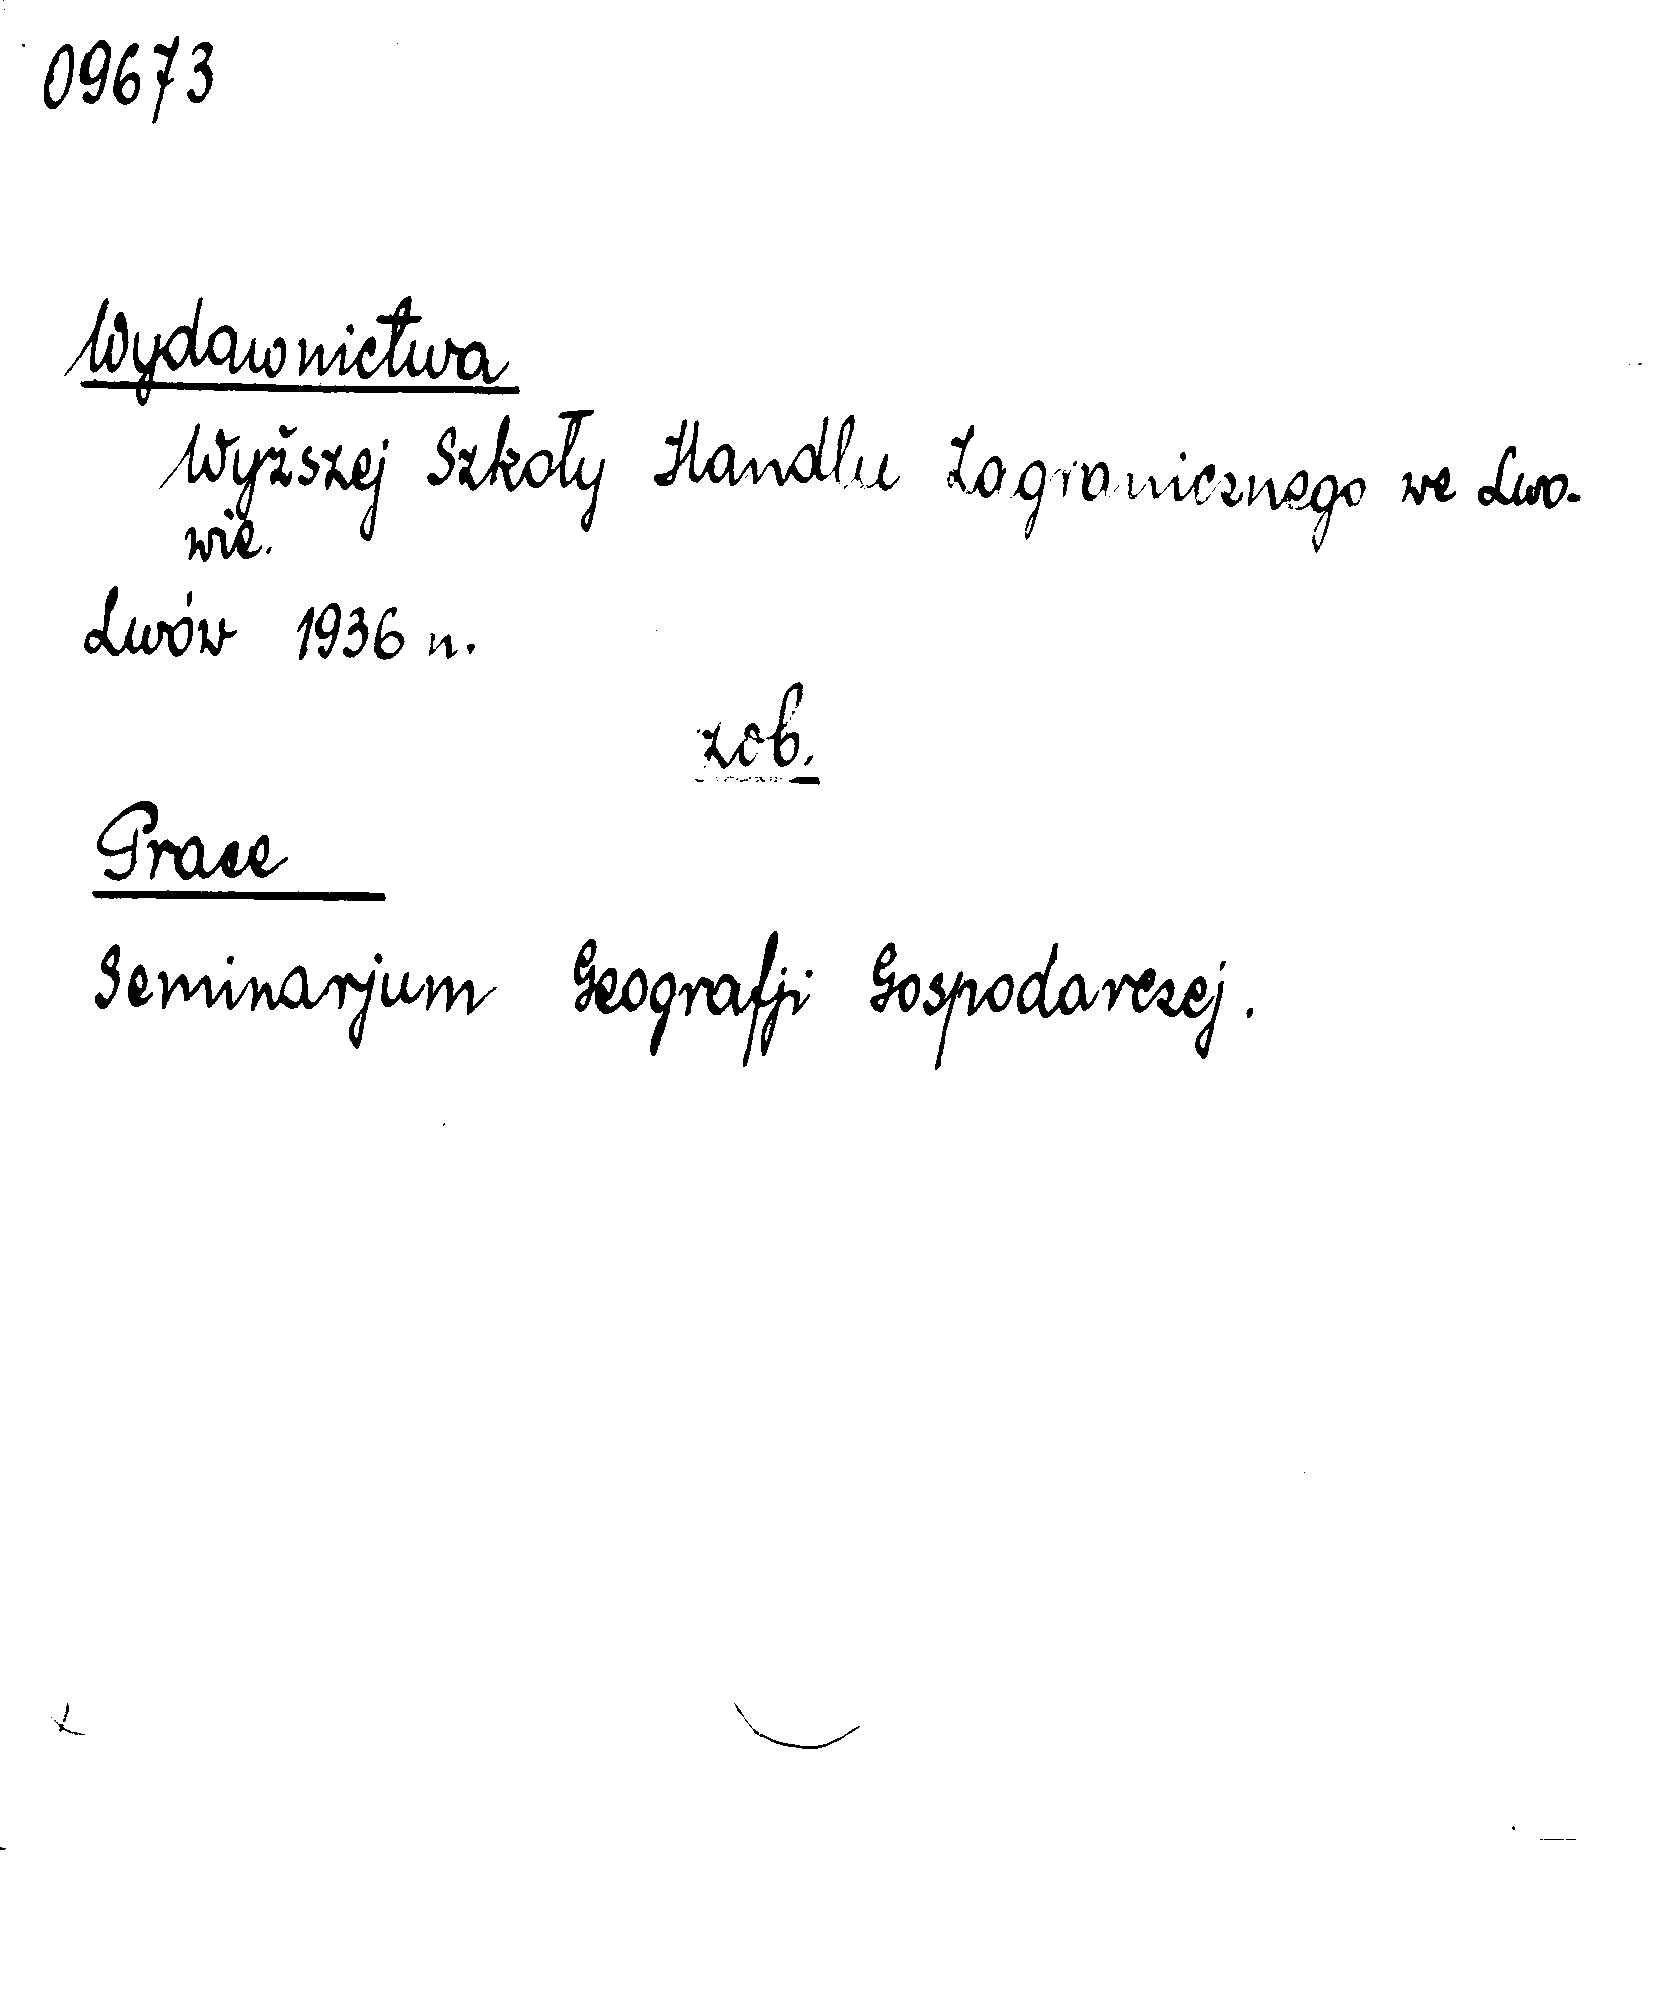 09673
Wydawnictwa
Wyższej Szkoły Handlu Zagranicznego we Lwo-
wie.
Lwów 1936 n.
zob.
Prace
Seminarjum Geografji Gospodarczej.